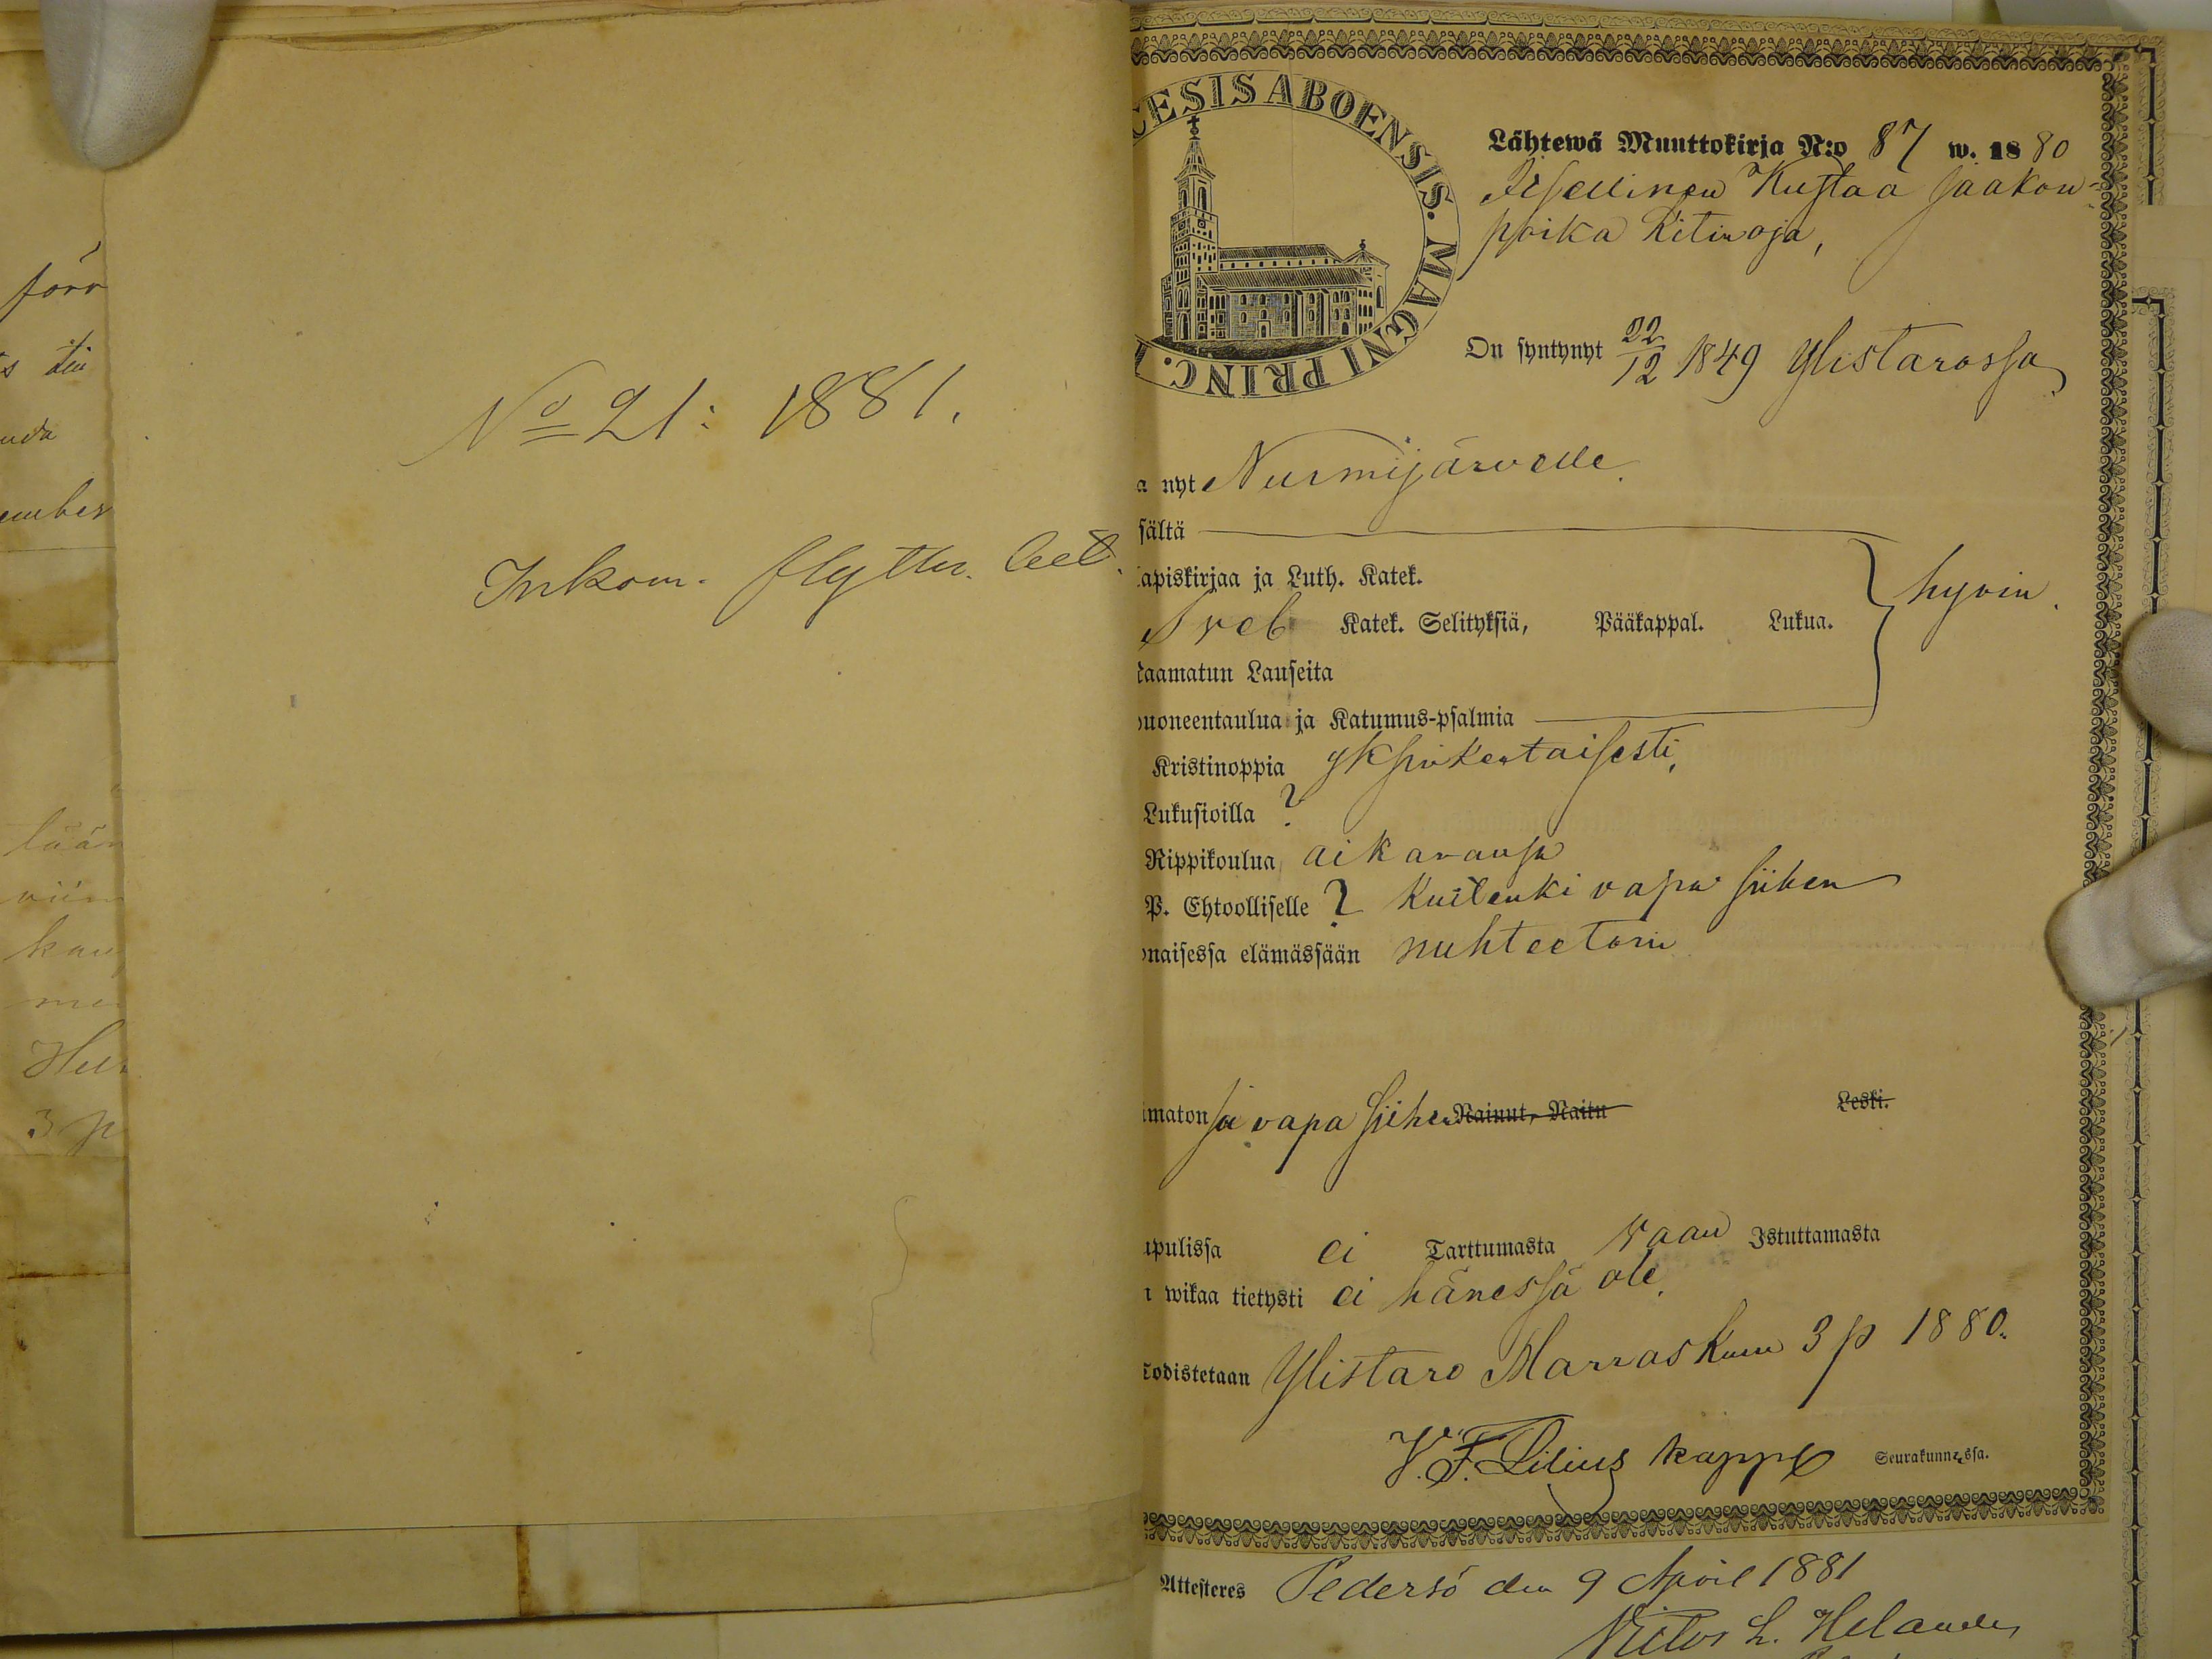 förr
s till
uda
ember
lään
viim
kau
me
Hel
3 p
No 21: 1881.
Inkom. flyttn. bet.
CESIS ABOENSIS. MAGNI PRINC.
Lähtewä Muuttokirja N:o 87 w. 1880
Itsellinen Kustaa Jaakon-
poika Kitinoja,
On syntynyt 22/12 1849 Ylistarossa
a nyt Nurmijärvelle
sältä
apiskirjaa ja Luth. Katek.
Sveb Katek. Selityksiä, Pääkappal. Lukua. hyvin.
taamatun Lauseita
uoneentaulua ja Katumus-psalmia
Kristinoppia yksinkertaisesti,
Lukusioilla ?
Rippikoulua aikanansa
P. Ehtoolliselle ? Kuitenki vapa siihen
naisessa elämässään nuhteetoin
imaton ja vapa siihen Nainut, Naitu Leski.
upulissa ei Tarttumasta vaan Istuttamasta
n wikaa tietysti ei hänessä ole.
Todistetaan Ylistaro Marraskuu 3 p 1880.
V. F. Lilius kappl Seurakunnassa.
Attesteres Pedersö den 9 April 1881
Victor L. Helander